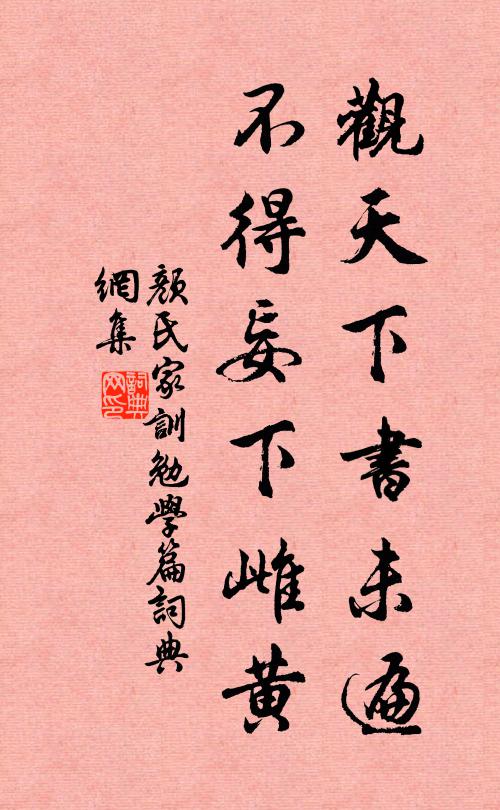 觀天下書未遍
不得妄下雌黄
顔氏家訓勉學篇詞典
網集
詞典
网印